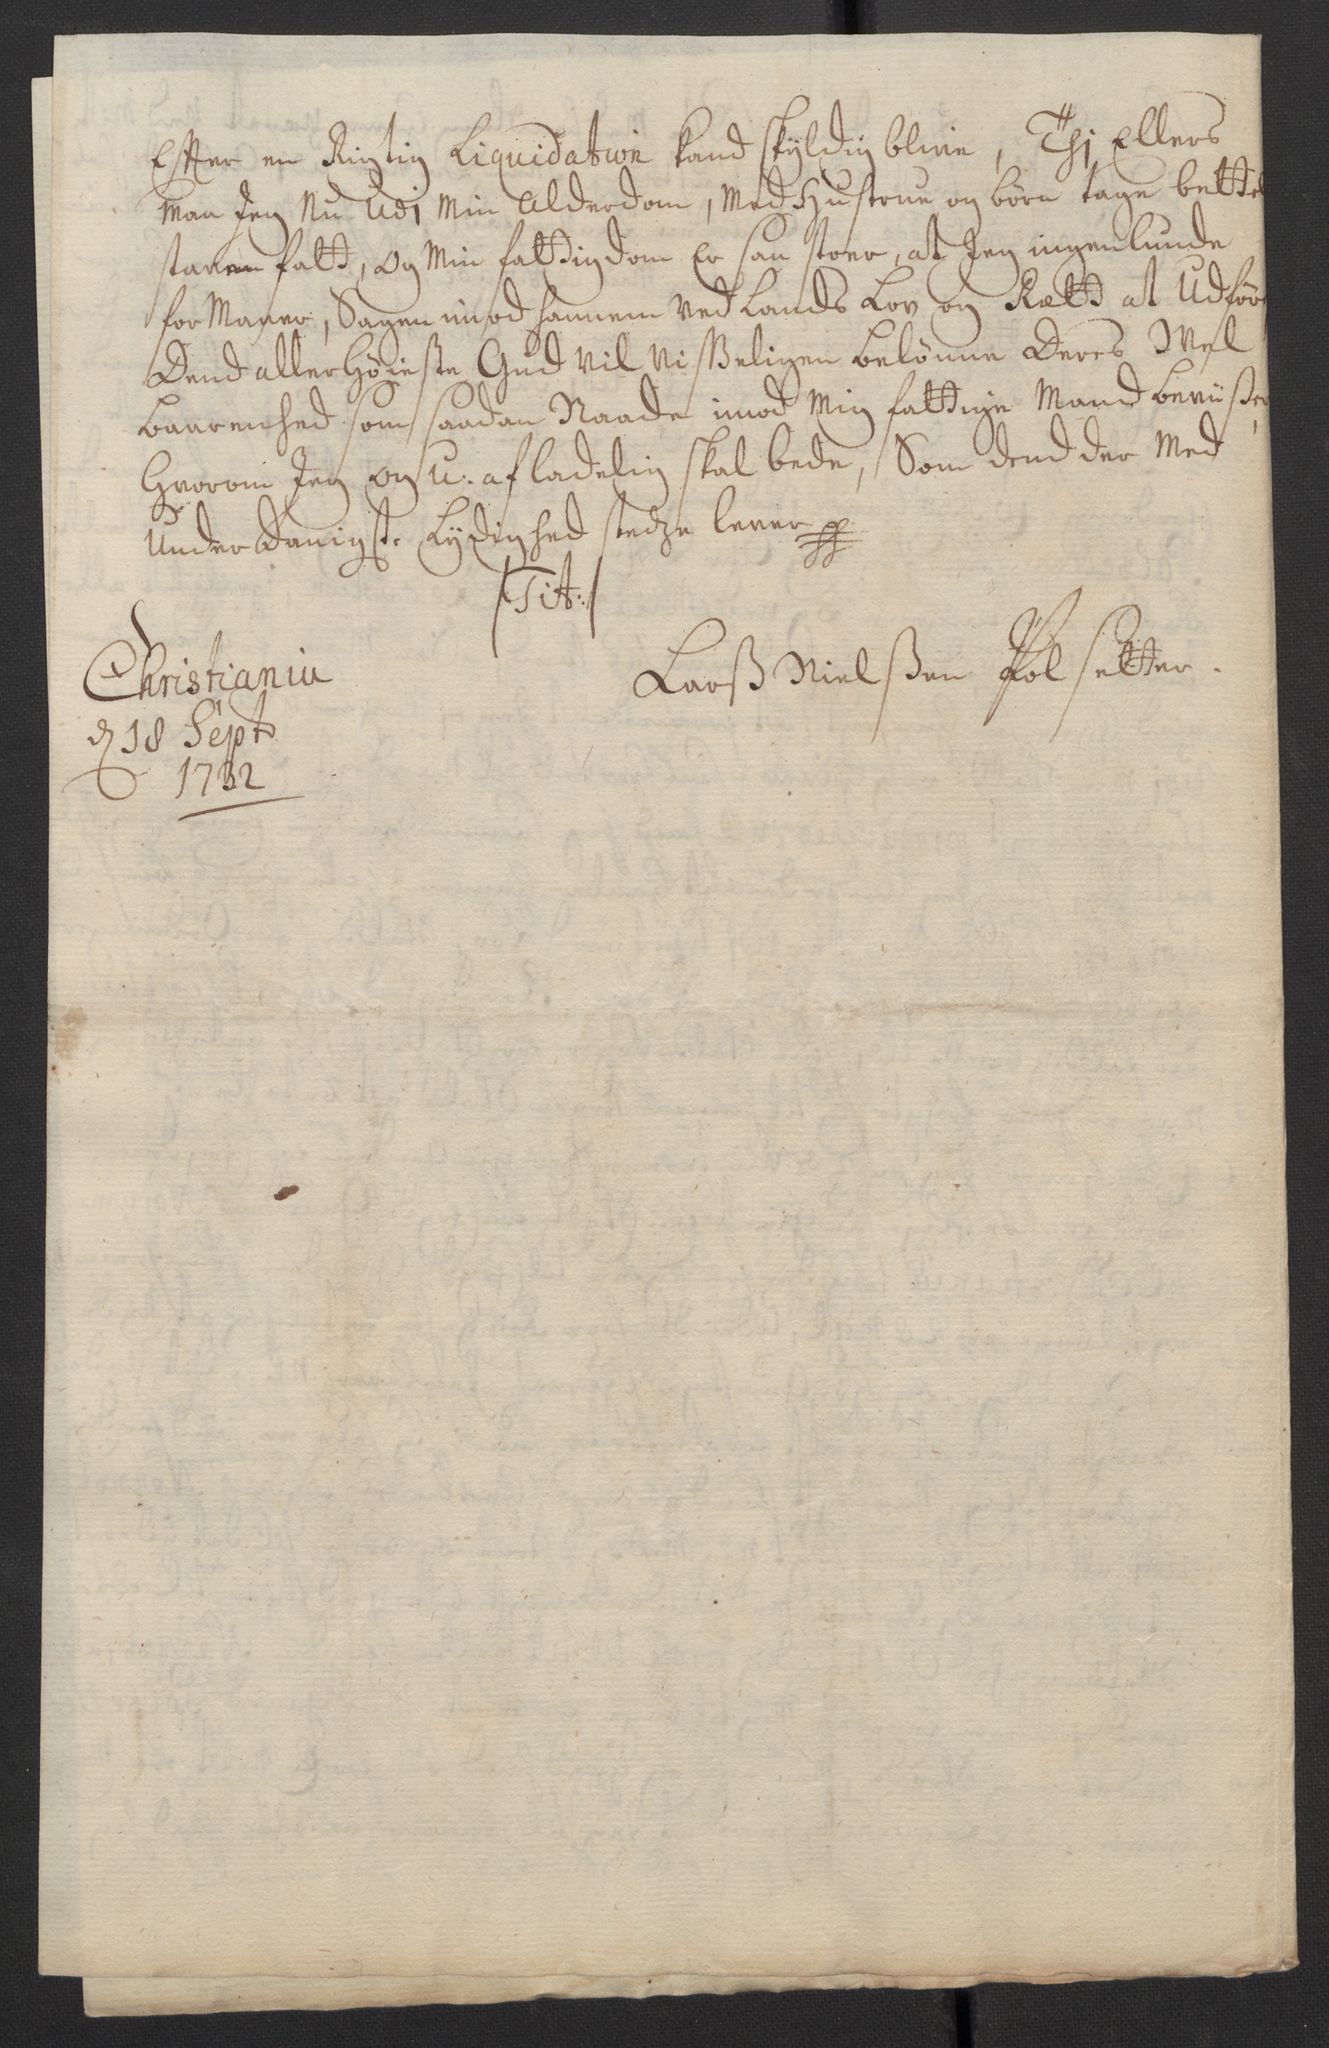 Efter en Rigtig Liquidation kand skÿldig blive, Thj Ellers
maa Jeg Nu udj min Alderdom, Med Hustrue og børn tage bettel
staven fatt, og Min fattigdom Er saa stoer, at Jeg ingenlunde
for Maaer, Sagen imod hannem ved Lands Lov og Rett at Udføre
Dend aller Høieste Gud vil visseligen belønne Deres Wel
baarenhed som saadan Naade imod Mig fattige Mand bevüßer,
Hvorom Jeg og u-afladelig skal bede, Som dend der Med
Underdanigst. Lÿdighed stedze lever
/Tit:/
Christiania
d 18 Sept
1732
Larß Nielßen Polsetter.